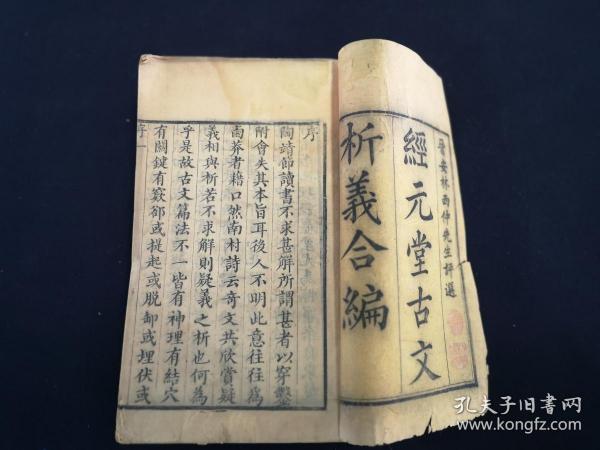 晉安林西仲先生評選
經元堂古文
析義合編
序
陶靖節讀書不求甚解所謂甚者以穿鑿
附會失其本旨耳後人不明此意往往為
鹵莽者藉口然南村詩云奇文共欣賞疑
義相與析若不求解則疑義之析也何為
乎是故古文篇法不一皆有神理有結穴
有關鍵有窽郤或提起或脫卸或埋伏或
序一
孔夫子旧书网
www.kongfz.com